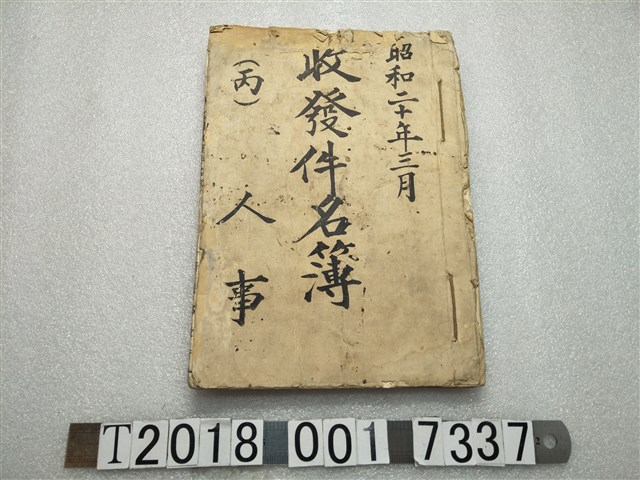 昭和二十年三月
收發件名簿
(丙)人事
T2018 001 7337
2